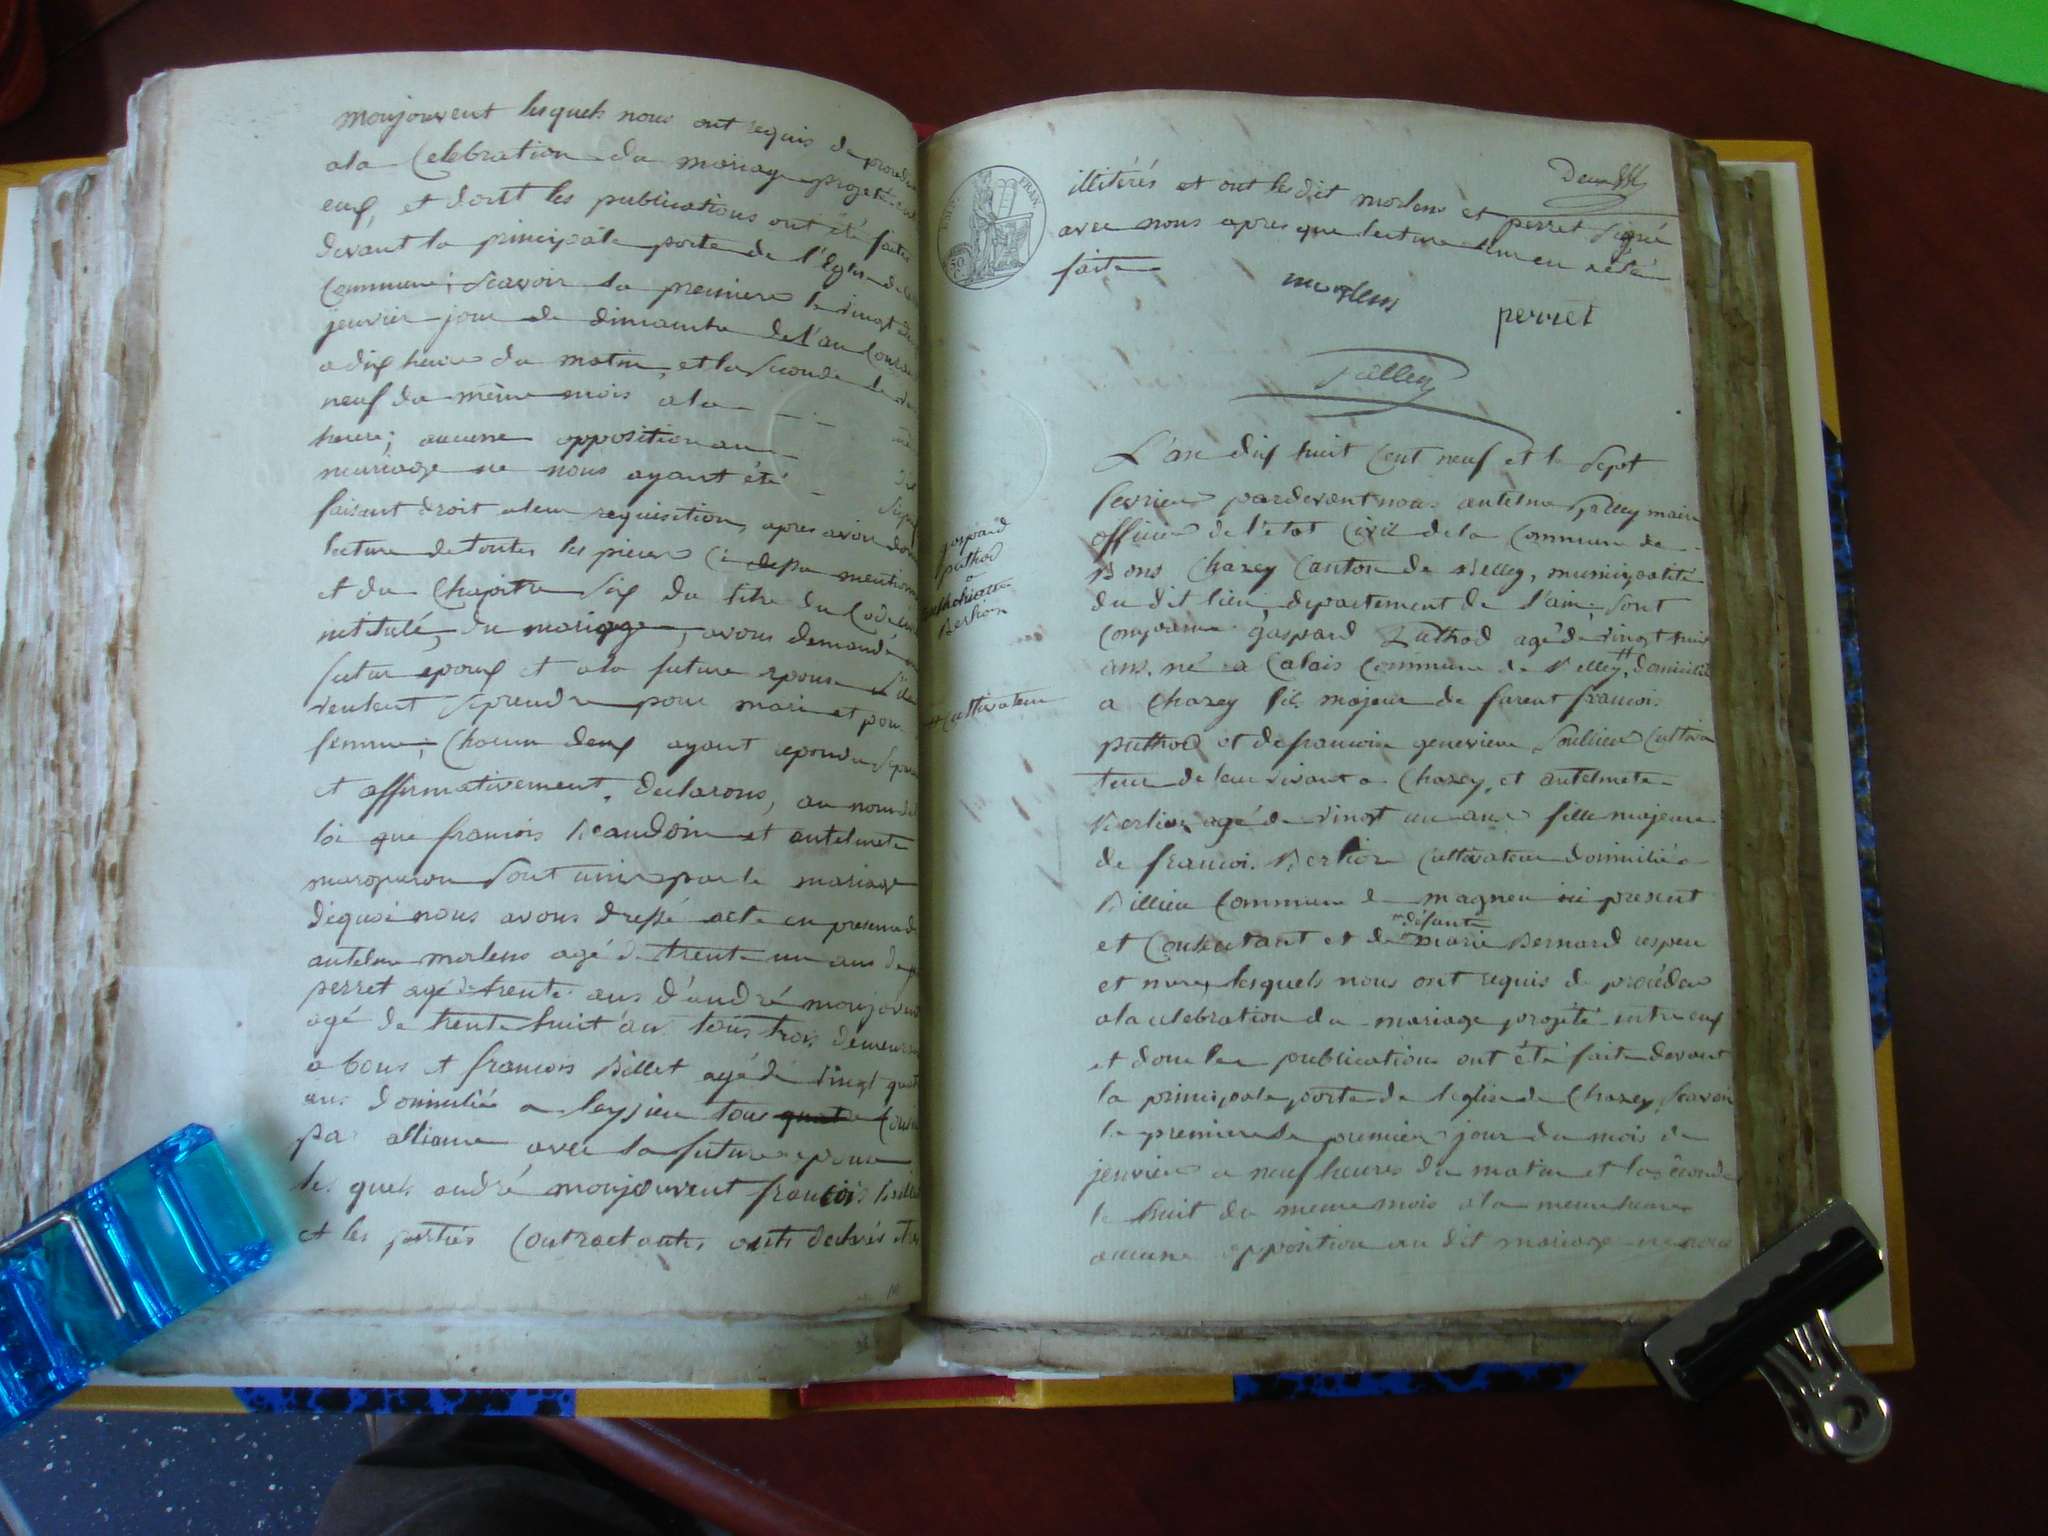 monjouvent lesquels nous ont requis de proceder
a la Celebration du mariage projetté
eux, et dont les publications ont été faites
devant la principale porte de l'Eglise de
Commune; Scavoir la premiere le vingt
jeuvier jour de dimanche de l'an Courant
a dix heure du matin, et la Seconde le
neuf du même mois a la
heure; aucune opposition au
mariage ne nous ayant été
faisant droit a leur requisition, apres avoir donné
lecture de toutes les pieces Ci dessu mention
et du Chapitre Six du titre du Code
intitulé, du mariage, avons demandé
futur epoux et a la future epouse S'ils
veulent Se prendre pour mari et pour
femme; Chacun deux ayant repondu Sepa
et affirmativement, declarons, au nom de
loi que francois Beaudoin et antelmete
sont unis par le mariage
dequoi nous avons dressé acte en presence de
antelme morlens agé de trente un ans de
perret agé de trente ans d'andré monjouvent
agé de trente huit ans tous trois demeurs
a bons et francois Billet agé de vingt quat
ans domicilié a leyssieu tous quatre Cousi
par alliance avec la future epouse
les quels andré monjouvent francois Billet
et les parties Contractantes onts declarés etre
Deux
illitérés et ont les dit morlens et perret Signé
avec nous apres que lecture leur en a été
faite
morlens
perret
Talley
L'an dix huit Cent neuf et le Sept
fevrier pardevant nous antelme Talley maire
officier de l'etat Civil de la Commune de
Bons Chazey Canton de Belley, municipalité
du dit lieu, departement de l'ain; Sont
Comparu gaspard Puthod agé de vingt huit
ans. né a Calais Commune de Belley, # domicilié
a Chazey fils majeur de furent francois
puthod et de francoise genevieve Soullieu Cultiva
teur de leur vivant a Chazey, et antelmete
Berlion agé de vingt un ans fille majeure
de francois. Berlion Cultivateur domicilié a
Billieu Commune de magneu ici present
et Consentant et de défunte marie Bernard ces peu
et mere, lesquels nous ont requis de procéder
a la celebration du mariage projété entre eux
et dont les publications ont été faite devant
la principale porte de l'eglise de Chazey Scavoir
la premiere le premier jour du mois de
jenvier a neuf heures du matin et la séconde
le huit du meme mois a la meme heure
aucune opposition au dit mariage ne nous
gaspard
puthod
a
Berlion
# Cultivateur